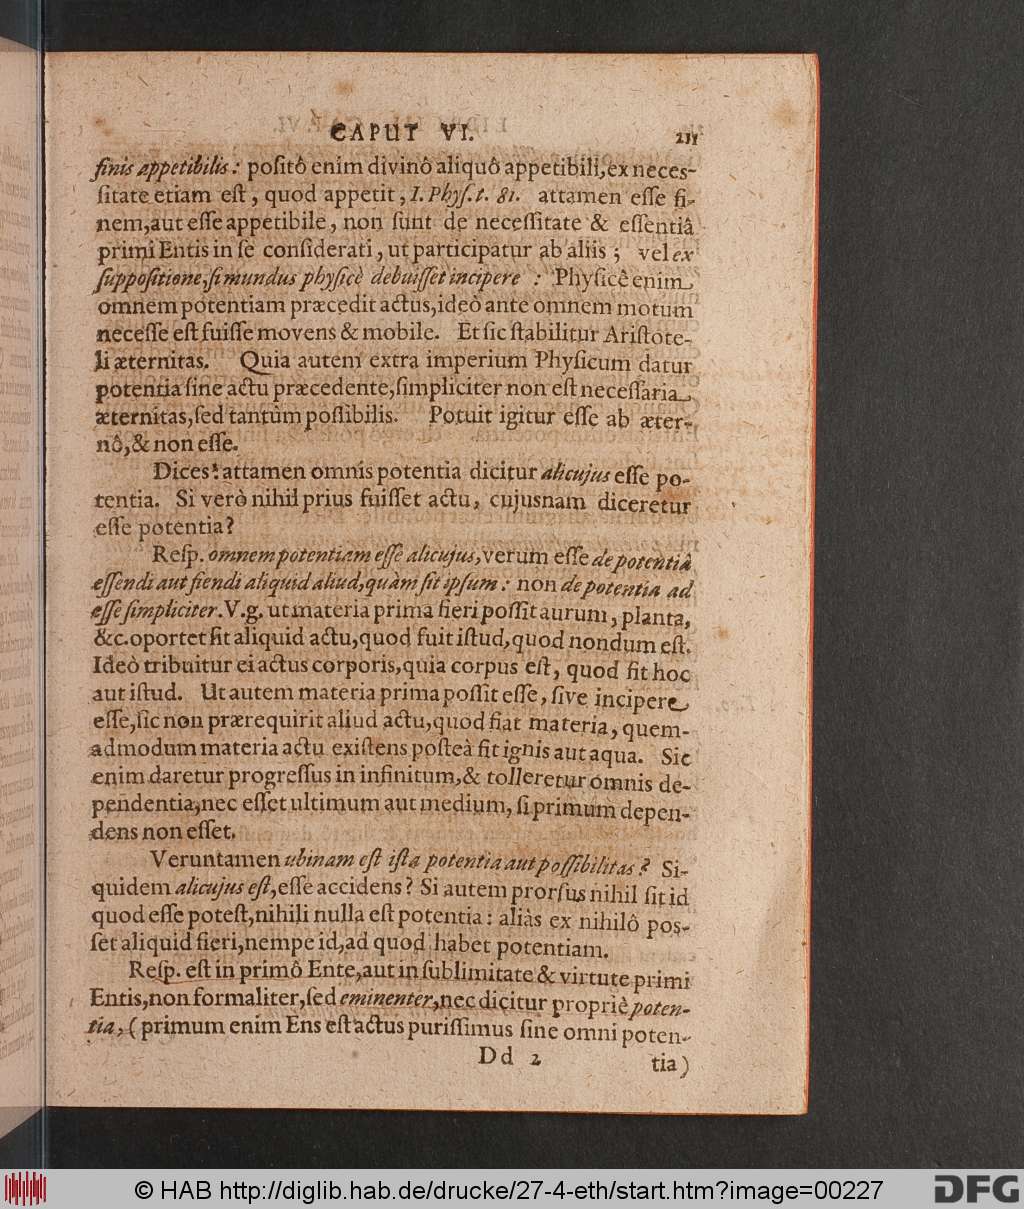 CAPUT VI. 211
finis appetibilis: positô enim divinô aliquô appetibili, ex neces-
sitate etiam est, quod appetit, I. Phys. t. 81. attamen esse fi-
nem, aut esse appetibile, non sunt de necessitate & essentiâ
primi Entis in se considerati, ut participatur ab aliis; vel ex
suppositione, si mundus physicè debuisset incipere: Physicê enim
omnem potentiam præcedit actus, ideò ante omnem motum
necesse est fuisse movens & mobile. Et sic stabilitur Aristote-
li æternitas. Quia autem extra imperium Physicum datur
potentia sine actu præcedente, simpliciter non est necessaria
æternitas, sed tantùm possibilis. Potuit igitur esse ab æter-
nô, & non esse.
Dices: attamen omnis potentia dicitur alicujus esse po-
tentia. Si verò nihil prius fuisset actu, cujusnam diceretur
esse potentia?
Resp. omnem potentiam esse alicujus, verum esse de potentiâ
essendi aut fiendi aliquid aliud, quàm sit ipsum: non de potentia ad
esse simpliciter. V.g. ut materia prima fieri possit aurum, planta,
&c. oportet sit aliquid actu, quod fuit istud, quod nondum est.
Ideò tribuitur ei actus corporis, quia corpus est, quod fit hoc
aut istud. Ut autem materia prima possit esse, sive incipere
esse, sic non prærequirit aliud actu, quod fiat materia, quem-
admodum materia actu existens posteà fit ignis aut aqua. Sic
enim daretur progressus in infinitum, & tolleretur omnis de-
pendentia, nec esset ultimum aut medium, si primum depen-
dens non esset.
Veruntamen ubinam est ista potentia aut possibilitas? Si-
quidem alicujus est, esse accidens? Si autem prorsus nihil sit id
quod esse potest, nihili nulla est potentia: aliàs ex nihilô pos-
set aliquid fieri, nempe id, ad quod habet potentiam.
Resp. est in primô Ente, aut in sublimitate & virtute primi
Entis, non formaliter, sed eminenter, nec dicitur propriè poten-
tia, (primum enim Ens est actus purissimus sine omni poten-
Dd 2 tia)
© HAB http://diglib.hab.de/drucke/27-4-eth/start.htm?image=00227 DFG